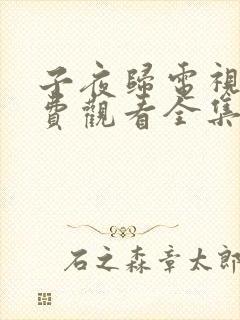 子夜歸電視
費觀看全集
石之森章太郎